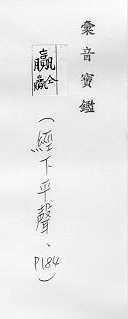 彙音寶鑑
贏
仝
(經下平聲、P184)